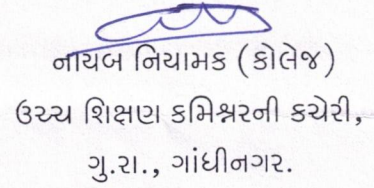 નાયબ નિયામક (કોલેજ)
ઉચ્ચ શિક્ષણ કમિશ્નરની કચેરી,
ગુ.રા., ગાંધીનગર.